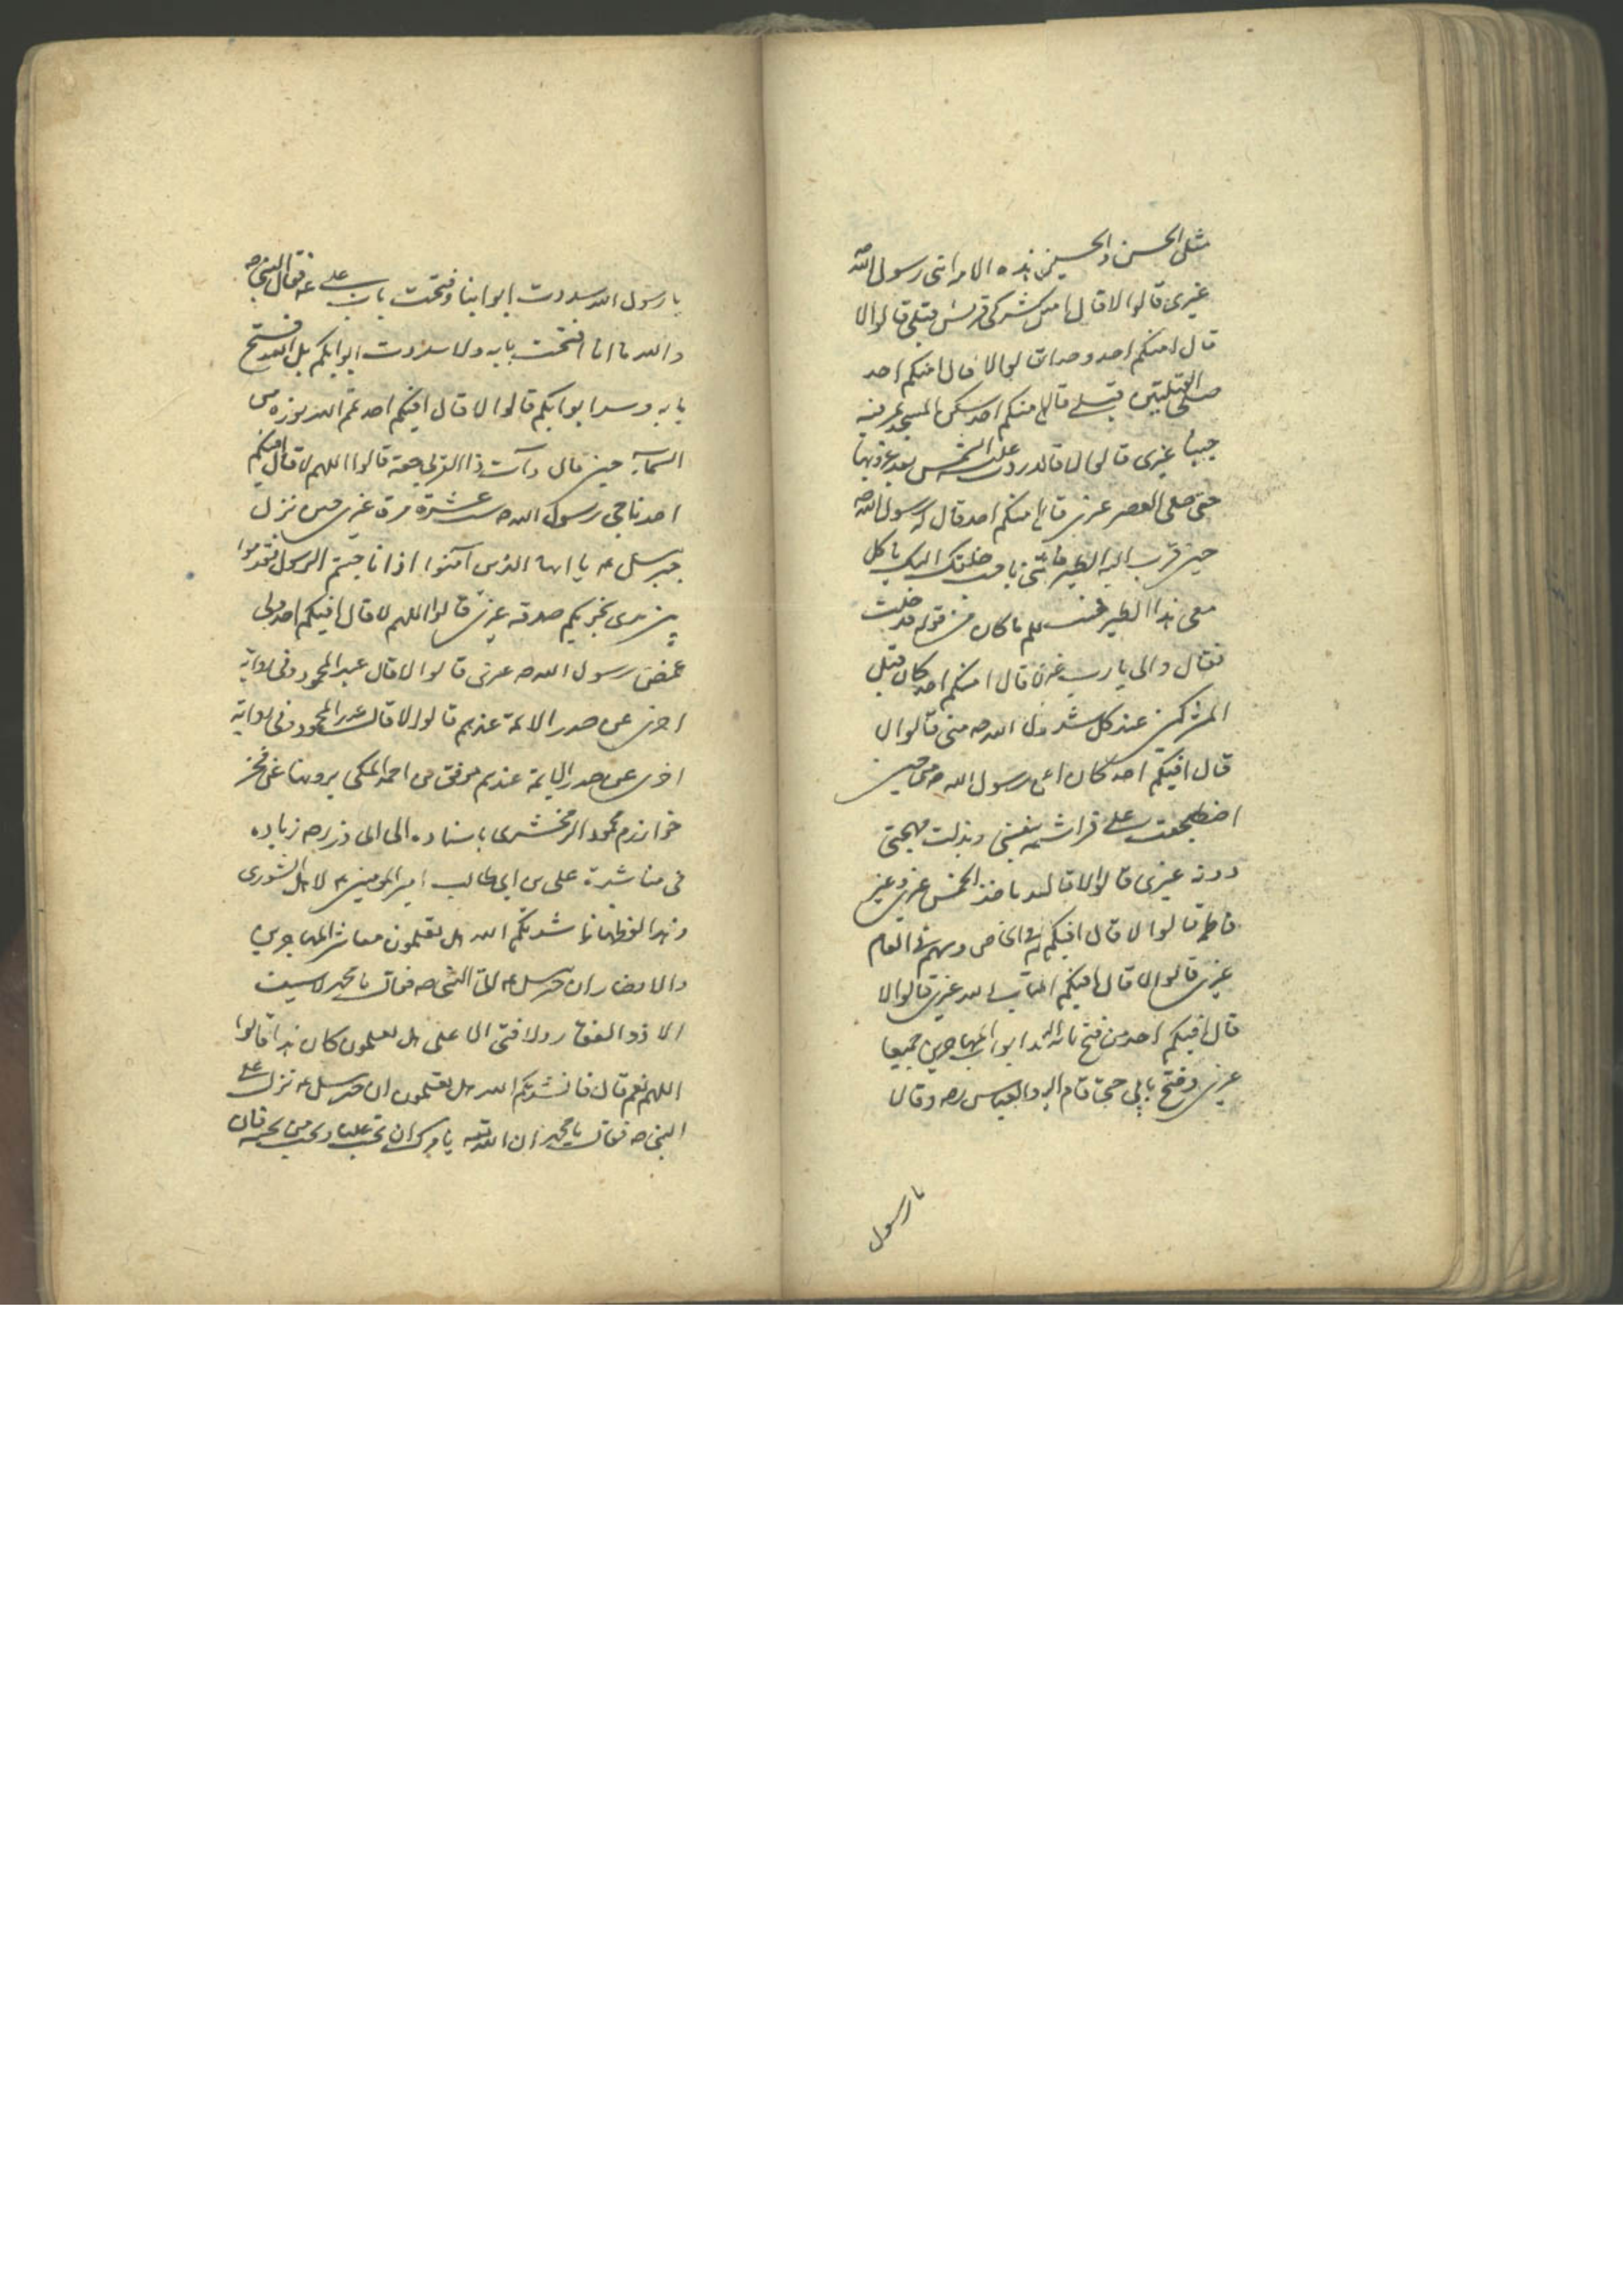 مثل الحسن والحسين هذه الامة ابنى رسول الله ص
غيرى قالوا لا قال امنكم مشركى قريش قبلى قالوا لا
قال امنكم احد وحد الله قالوا لا قال امنكم احد
صلى القبلتين قبلى قال امنكم احد سكن المسجد يمر فيه
جنبا غيرى قالوا لا قال ردت عليه الشمس بعد غروبها
حتى صلى العصر غيرى قال امنكم احد قال له رسول الله ص
حين قرب اليه الطير فا يا رب خلقك اليك ياكل
معى هذا الطير فجئت ما كان من قوله فدخلت
فقال والى يا رب غيرى قال امنكم احد كان قتل
المشركين عند كل شد رسول الله ص منى قالوا لا
قال افيكم احد كان رسول الله ص منى حين
اضطجعت على فراشه بنفسى وبذلت مهجتى
دونه غيرى قالوا لا قال ياخذ الخمس غيرى وغير
فاطمة قالوا لا قال افيكم له فى الخاص وسهم فى العام
غيرى قالوا لا قال افيكم غيرى قالوا لا
قال افيكم احد من فتح بابه ابواب المهاجرين جميعا
غيرى وفتح بابى حتى قام اليه والعباس رض وقالا
يا رسول
يا رسول الله سددت ابوابنا وفتحت باب على ع فقال النبى ص
والله ما انا افتحت بابه ولا سددت ابوابكم بل الله فتح
بابه وسد ابوابكم قالوا لا قال افيكم احد تمم الله نوره من
السماء حين قال وآت ذا القربى حقه قالوا اللهم لا قال افيكم
احد ناجى رسول الله ص ست عشرة مرة غيرى حين نزل
جبرسل ع يا ايها الذين آمنوا اذا ناجيتم الرسول فقدموا
بين يدى نجويكم صدقة غيرى قالوا اللهم لا قال افيكم احد ولى
غمض رسول الله ص غيرى قالوا لا قال عبد المحمود وفى رواية
اخرى عن صدر الائمة عندهم قالوا لا قال عبد المحمود وفى رواية
اخرى عن صدر الايمة عندهم موفق بن احمد المكى يرويها عن فخر
خوارزم محمود الزمخشرى باسناده الى ابى ذر رض زيادة
فى مناشدة على بن ابى طالب امير المؤمنين ع لاهل الشورى
وهذا لفظها ناشدتكم الله هل تعلمون معاشر المهاجرين
والانصار ان جبرسل ع اتى النبى ص فقال يا محمد لا سيف
الا ذو الفقار ولا فتى الا على هل تعلمون كان هذا قالوا
اللهم نعم قال فانشدتكم الله هل تعلمون ان جبرسل ع نزل على
النبى ص فقال يا محمد ان الله تعه يامرك ان تحب عليا وتحب من يحبه فان